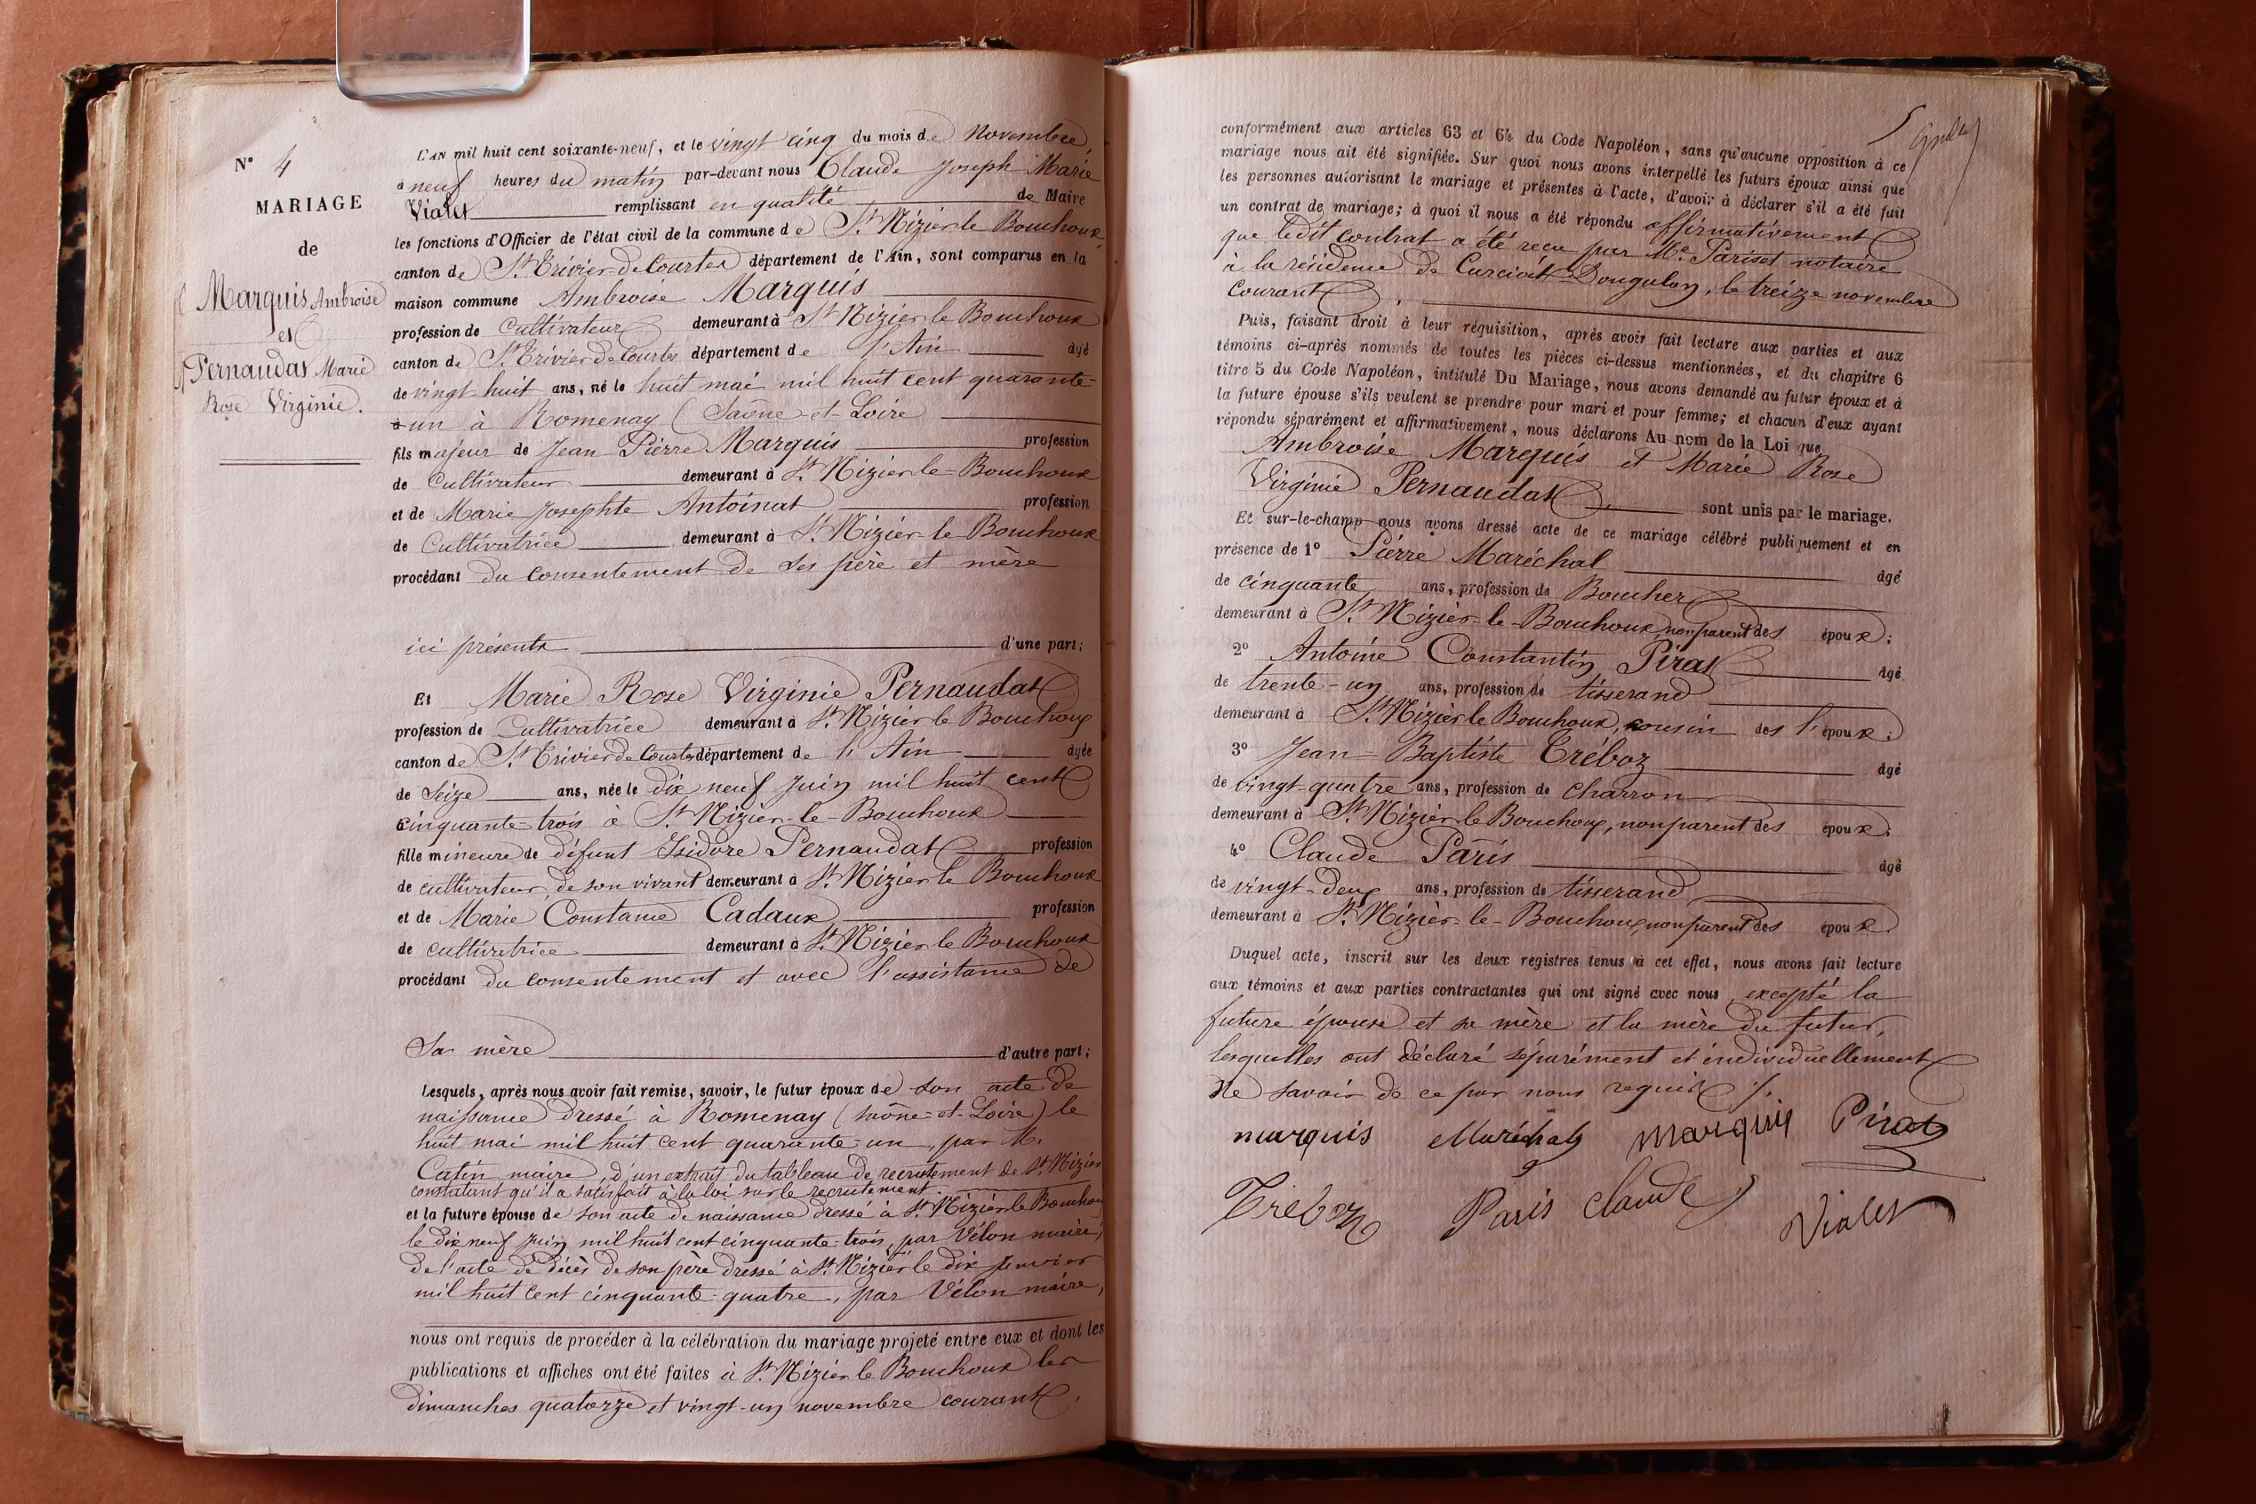 N° 4
MARIAGE
de
Marquis Ambroise
et
Pernaudat Marie
Rose Virginie.
L'AN mil huit cent soixante-neuf, et le vingt cinq du mois de Novembre
à neuf heures du matin par-devant nous Claude Joseph Marie
Vialet remplissant en qualité de Maire
les fonctions d'Officier de l'état civil de la commune de St Nizier le Bouchoux,
canton de St Trivier de Courtes département de l'Ain, sont comparus en la
maison commune Ambroise Marquis
profession de Cultivateur demeurant à St Nizier le Bouchoux
canton de St Trivier de Courtes département de l'Ain âgé
de vingt huit ans, né le huit mai mil huit cent quarante-
un à Romenay (Saône-et-Loire
fils majeur de Jean Pierre Marquis profession
de Cultivateur demeurant à St Nizier-le-Bouchoux
et de Marie Josephte Antoinat profession
de Cultivatrice demeurant à St Nizier-le-Bouchoux
procédant du consentement de ses père et mère
ici présents d'une part;
Et Marie Rose Virginie Pernaudat
profession de Cultivatrice demeurant à St Nizier le Bouchoux
canton de St Trivier de Courtes département de l'Ain âgée
de Seize ans, née le dix neuf Juin mil huit cent
cinquante-trois à St Nizier-le-Bouchoux
fille mineure de défunt Isidore Pernaudat profession
de cultivateur de son vivant demeurant à St Nizier le Bouchoux
et de Marie Constance Cadaux profession
de cultivatrice demeurant à St Nizier le Bouchoux
procédant du consentement et avec l'assistance de
Sa mère d'autre part;
Lesquels, après nous avoir fait remise, savoir, le futur époux de son acte de
naissance dressé à Romenay (Saône-et-Loire) le
huit mai mil huit cent quarante-un, par M.
Catin maire, d'un extrait du tableau de recrutement de St Nizier
constatant qu'il a satisfait à la loi sur le recrutement
et la future épouse de son acte de naissance dressé à St Nizier le Bouchoux
le dix neuf Juin mil huit cent cinquante-trois, par Vélon maire,
de l'acte de décès de son père dressé à St Nizier le dix Janvier
mil huit cent cinquante-quatre, par Vélon maire,
nous ont requis de procéder à la célébration du mariage projeté entre eux et dont les
publications et affiches ont été faites à St Nizier le Bouchoux les
dimanches quatorze et vingt-un novembre courant.
conformément aux articles 63 et 64 du Code Napoléon, sans qu'aucune opposition à ce
mariage nous ait été signifiée. Sur quoi nous avons interpellé les futurs époux ainsi que
les personnes autorisant le mariage et présentes à l'acte, d'avoir à déclarer s'il a été fait
un contrat de mariage; à quoi il nous a été répondu affirmativement
que ledit contrat a été reçu par Me Pariset notaire
à la résidence de Curciat-Dongalon, le treize novembre
courant.
Puis, faisant droit à leur réquisition, après avoir fait lecture aux parties et aux
témoins ci-après nommés de toutes les pièces ci-dessus mentionnées, et du chapitre 6
titre 5 du Code Napoléon, intitulé Du Mariage, nous avons demandé au futur époux et à
la future épouse s'ils veulent se prendre pour mari et pour femme; et chacun d'eux ayant
répondu séparément et affirmativement, nous déclarons Au nom de la Loi que
Ambroise Marquis et Marie Rose
Virginie Pernaudat, sont unis par le mariage.
Et sur-le-champ nous avons dressé acte de ce mariage célébré publiquement et en
présence de 1° Pierre Maréchal âgé
de cinquante ans, profession de Boucher
demeurant à St Nizier-le-Bouchoux, non parent des époux;
2° Antoine Constantin Pirat âgé
de trente-un ans, profession de tisserand
demeurant à St Nizier le Bouchoux, cousin des l'époux;
3° Jean-Baptiste Tréboz âgé
de vingt-quatre ans, profession de charron
demeurant à St Nizier le Bouchoux, non parent des époux;
4° Claude Paris âgé
de vingt-deux ans, profession de tisserand
demeurant à St Nizier-le-Bouchoux, non parent des époux.
Duquel acte, inscrit sur les deux registres tenus à cet effet, nous avons fait lecture
aux témoins et aux parties contractantes qui ont signé avec nous, excepté la
future épouse et sa mère et la mère du futur,
lesquelles ont déclaré séparément et individuellement
ne savoir de ce par nous requis ./.
marquis Maréchal marquis Pirat
Treboz Paris Claude Vialet